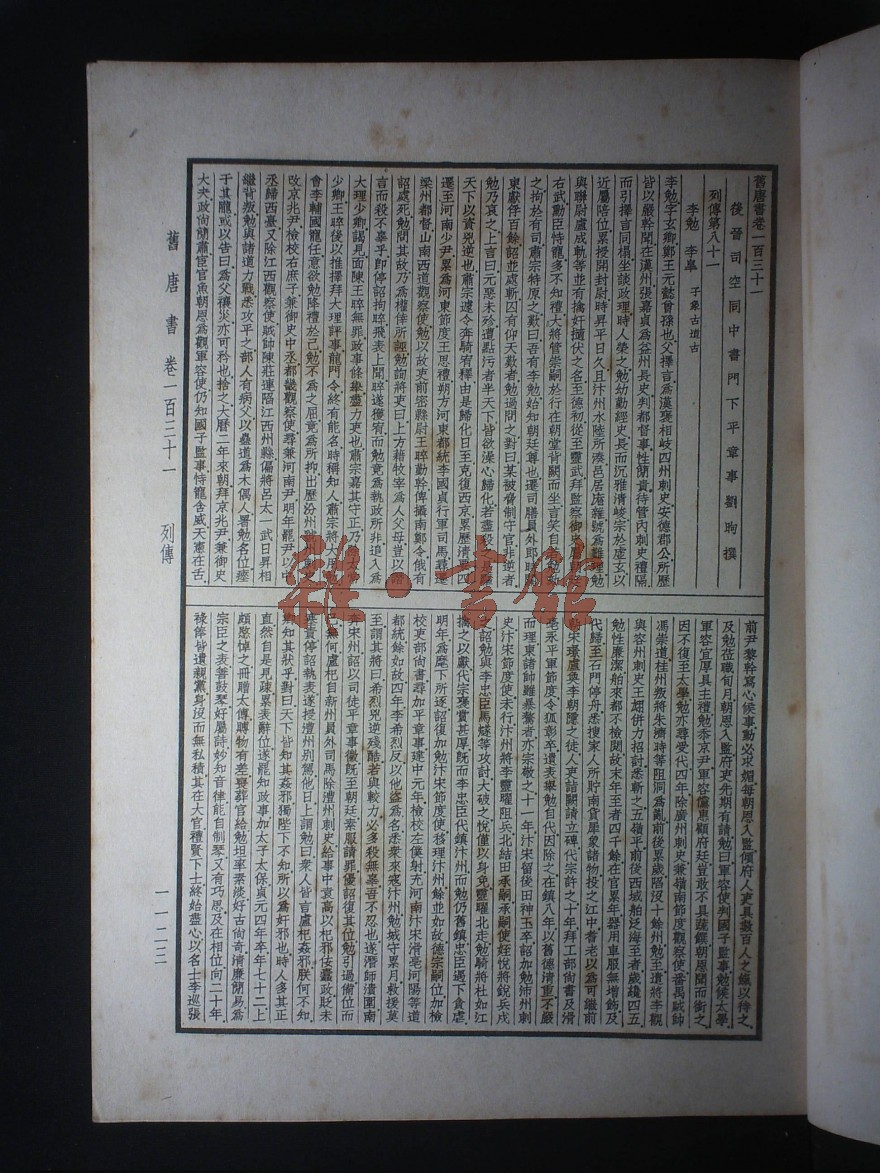 舊唐書卷一百三十一
後晉司空同中書門下平章事劉昫撰
列傳第八十一
李勉 李皋 子象古道古
李勉字玄卿鄭王元懿曾孫也父擇言為漢褒相岐四州刺史安德郡公所歷
皆以嚴幹聞在漢州張嘉貞為益州長史判都督事性簡貴待管內刺史禮隔
而引擇言同榻坐談政理時人榮之勉幼勤經史長而沉雅清峻宗於虛玄以
近屬陪位累授開封尉時昇平日久且汴州水陸所湊邑居庬雜號為難理勉
與聯尉盧成軌等並有擒奸擿伏之名至德初從至靈武拜監察御史
右武勳臣恃寵多不知禮大將管崇嗣於行在朝堂背闕而坐言笑自若勉劾
之拘於有司肅宗特原之歎曰吾有李勉始知朝廷尊也遷司膳員外郎時關
東獻俘百餘詔並處斬囚有仰天歎者勉過問之對曰某被脅制守官非逆者
勉乃哀之上言曰元惡未殄遭點污者半天下皆欲澡心歸化若盡殺之是驅
天下以資兇逆也肅宗遽令奔騎宥釋由是歸化日至克復西京累歷清要四
遷至河南少尹累為河東節度王思禮朔方河東都統李國貞行軍司馬尋遷
梁州都督山南西道觀察使勉以故吏前密縣尉王晬勤幹俾攝南鄭令俄有
詔處死勉問其故乃為權倖所誣勉詢將吏曰上方藉牧宰為人父母豈以譖
言而殺不辜乎即停詔拘晬飛表上聞晬遂獲宥而勉竟為執政所非追入為
大理少卿謁見面陳王晬無罪政事條舉盡力吏也肅宗嘉其守正乃太
少卿王晬後以推擇拜大理評事龍門令終有能名時稱知人肅宗將大用
會李輔國寵任意欲勉降禮於己勉不為之屈竟為所抑出歷汾州
改京兆尹檢校右庶子兼御史中丞都畿觀察使尋兼河南尹明年罷尹以中
丞歸西臺又除江西觀察使賊帥陳莊連陷江西州縣偏將呂太一武日昇相
繼背叛勉與諸道力戰悉攻平之部人有病父以蠱道為木偶人署勉名位瘞
于其隴或以告曰為父禳災亦可矜也捨之大曆二年來朝拜京兆尹兼御史
大夫政尚簡肅宦官魚朝恩為觀軍容使仍知國子監事恃寵含威天憲在舌
前尹黎幹寫心候事動必求媚每朝恩入監傾府人吏具數百人之饌以待之
及勉蒞職旬月朝恩入監府吏先期有請勉曰軍容使判國子監事勉候太學
軍容宜厚具主禮勉忝京尹軍容儻惠顧府廷豈敢不具蔬饌朝恩聞而銜之
因不復至太學勉亦尋受代四年除廣州刺史兼嶺南節度觀察使番禺賊帥
馮崇道桂州叛將朱濟時等阻洞為亂前後累歲陷沒十餘州勉至遣將李觀
與容州刺史王翃併力招討悉斬之五嶺平前後西域舶泛海至者歲纔四五
勉性廉潔舶來都不檢閱故末年至者四千餘在官累年器用車服無增飾及
代歸至石門停舟悉搜家人所貯南貨犀象諸物投之江中耆老以為可繼前
宋璟盧奐李朝隱之徒人吏詣闕請立碑代宗許之十年拜工部尚書及滑
亳永平軍節度令狐彰卒遺表舉勉自代因除之在鎮八年以舊德清重不嚴
而理東諸帥雖暴驁者亦宗敬之十一年汴宋留後田神玉卒詔加勉汴州刺
史汴宋節度使未行汴州將李靈曜阻兵北結田承嗣承嗣使姪悅將銳兵戍
之詔勉與李忠臣馬燧等攻討大破之悅僅以身免靈曜北走勉騎將杜如江
擒之以獻代宗褒賞甚厚既而李忠臣代鎮汴州而勉仍舊鎮忠臣遇下貪虐
明年為麾下所逐詔復加勉汴宋節度使移理汴州餘並如故德宗嗣位加檢
校吏部尚書尋加平章事建中元年檢校左僕射充河南汴宋滑亳河陽等道
都統餘如故四年李希烈反以他盜為名悉眾來寇汴州勉城守累月救援莫
至謂其將曰希烈兇逆殘酷若與較力必多殺無辜吾不忍也遂潛師潰圍南
奔宋州詔以司徒平章事徵既至朝廷素服請罪優詔復其位勉引過備位而
已無何盧杞自新州員外司馬除澧州刺史給事中袁高以杞邪佞蠹政貶未
塞責停詔執表遂授澧州別駕他日上謂勉曰眾人皆言盧杞姦邪朕何不知
卿知其狀乎對曰天下皆知其姦邪獨陛下不知所以為奸邪也時人多其正
直然自是見疏累表辭位遂罷知政事加太子太保貞元四年卒年七十二上
頗愍悼之冊贈太傅賻物有差喪葬官給勉坦率素淡好古尚奇清廉簡易為
宗臣之表善鼓琴好屬詩妙知音律能自制琴又有巧思及在相位向二十年
祿俸皆遺親黨身沒而無私積其在大官禮賢下士終始盡心以名士李巡張
舊唐書 卷一百三十一 列傳
一一二三
雜·書館